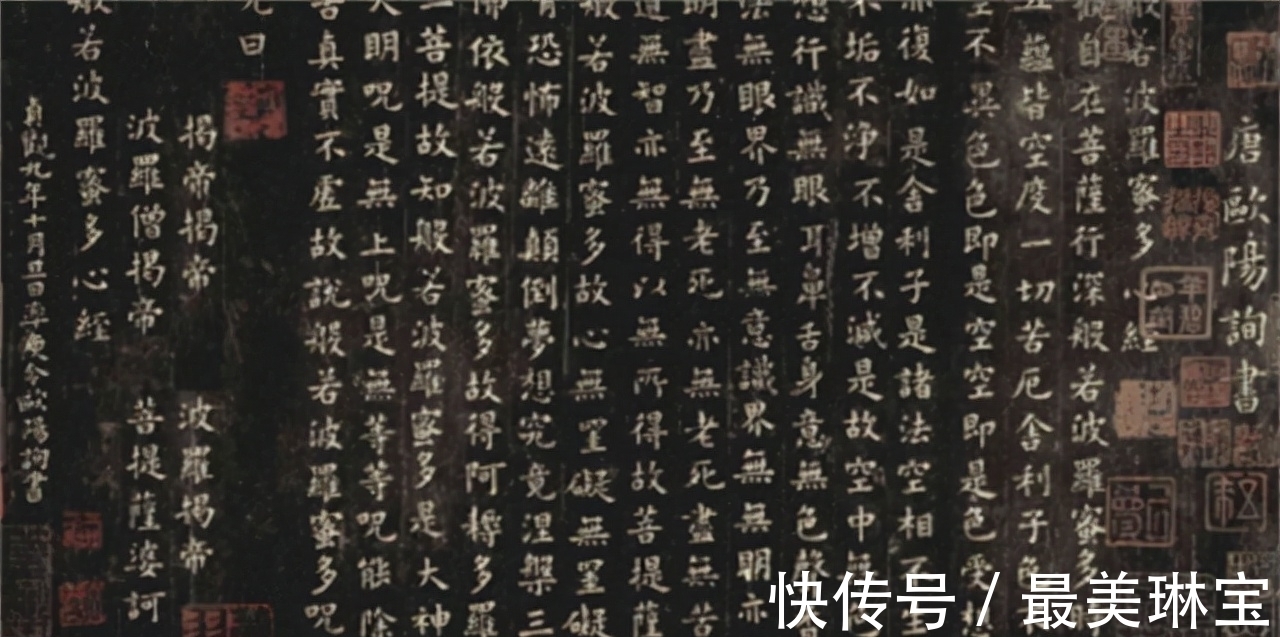 唐歐陽詢書
般若波羅蜜多心經
自在菩薩行深般若波羅蜜多
五蘊皆空度一切苦厄舍利子色
空不異色色即是空空即是色受想
亦復如是舍利子是諸法空相不
不垢不淨不增不減是故空中無色
想行識無眼耳鼻舌身意無色聲
法無眼界乃至無意識界無無明亦
明盡乃至無老死亦無老死盡無苦
道無智亦無得以無所得故菩提薩
般若波羅蜜多故心無罣礙無罣礙
有恐怖遠離顛倒夢想究竟涅槃三
佛依般若波羅蜜多故得阿耨多羅
三菩提故知般若波羅蜜多是大神
大明呪是無上呪是無等等呪能除
苦真實不虛故說般若波羅蜜多呪
呪曰
揭帝揭帝 波羅揭帝
波羅僧揭帝 菩提薩婆訶
般若波羅蜜多心經
貞觀九年十月旦日率更令歐陽詢書
快传号 / 最美琳宝